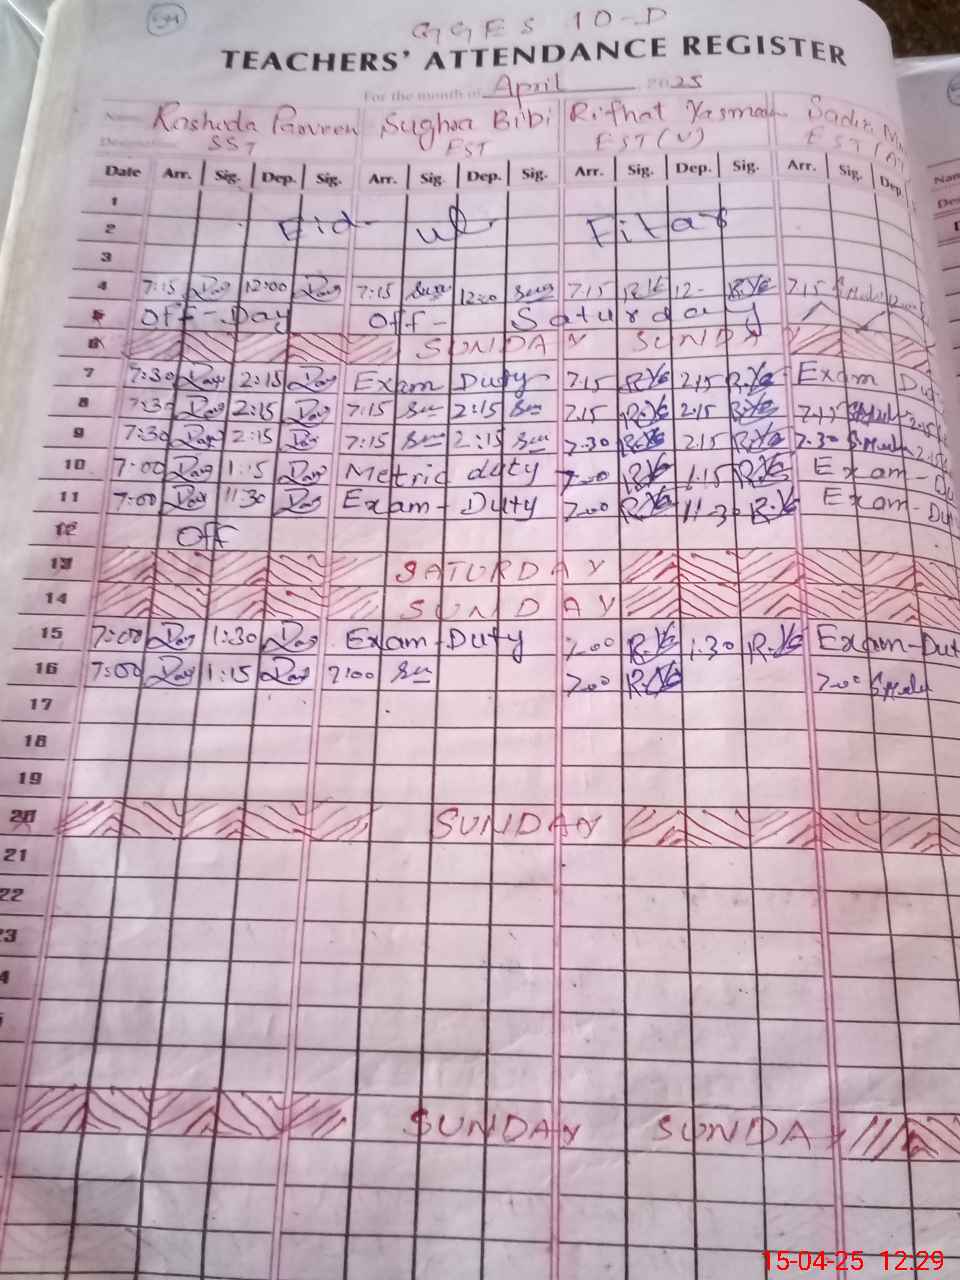 GGES 10-D
TEACHERS' ATTENDANCE REGISTER
For the month of April 2025
Name Rashida Parveen Sughra Bibi Rifhat Yasmeen Sadia
Designation SST EST EST (V) EST (A)
Date Arr. Sig. Dep. Sig. Arr. Sig. Dep. Sig. Arr. Sig. Dep. Sig. Arr. Sig. Dep
1
2 Eid- ul Fitar
3
4 7:15 12:00 7:15 12:00 7.15 R.Y 12- R.Ya 7.15
5 Off-Day Off- Saturday
6 SUNDAY SUNDAY
7 7:30 2:15 Exam Duty 7.15 R.Ya 2.15 R.Ya Exam Du
8 7:30 2:15 7:15 2:15 7.15 R.Ya 2.15 R.Ya 7.15 2.15
9 7:30 2:15 7:15 2:15 7.30 R.Ya 2.15 R.Ya 7.30 2.15
10 7:00 1:15 Metric duty 7.00 R.Ya 1.15 R.Ya Exam-Du
11 7:00 11:30 Exam-Duty 7.00 R.Ya 11.30 R.Ya Exam-Du
12 Off
13 SATURDAY
14 SUNDAY
15 7:00 1:30 Exam-Duty 7.00 R.Ya 1:30 R.Ya Exam-Dut
16 7:00 1:15 7:00 7.00 R.Ya 7.00
17
18
19
20 SUNDAY
21
22
23
4
SUNDAY SUNDAY
15-04-25 12.29